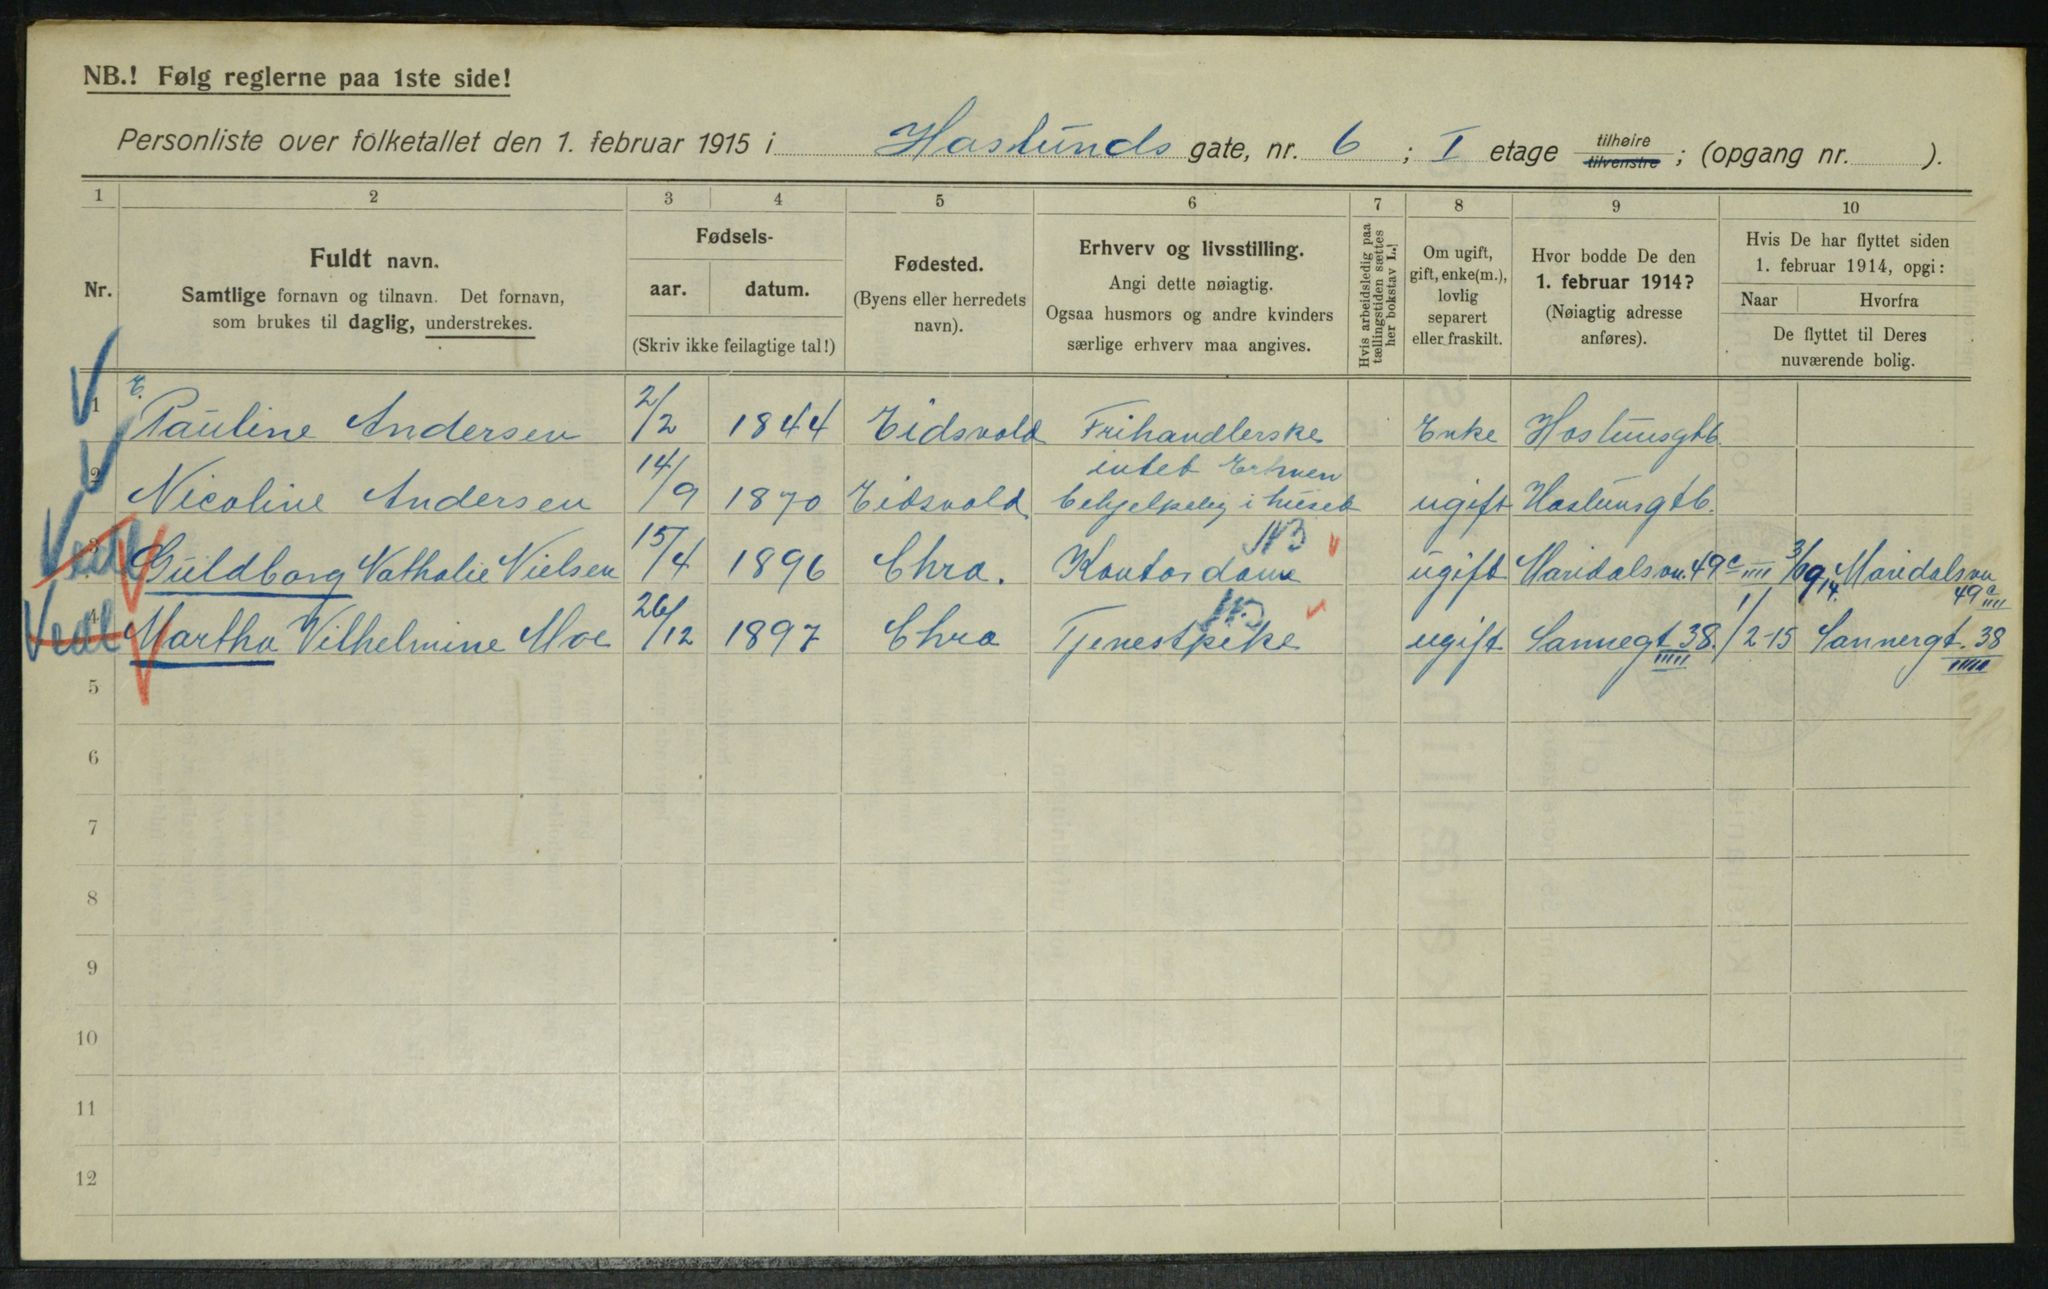 NB.! Følg reglerne paa 1ste side!
Personliste over folketallet den 1. februar 1915 i Haslunds gate, nr. 6 ; I etage tilhøire tilvenstre ; (opgang nr. ).
1 2 3 4 5 6 7 8 9 10
Nr.
Fuldt navn.
Samtlige fornavn og tilnavn. Det fornavn,
som brukes til daglig, understrekes.
Fødsels-
aar. datum.
(Skriv ikke feilagtige tal!)
Fødested.
(Byens eller herredets
navn).
Erhverv og livsstilling.
Angi dette nøiagtig.
Ogsaa husmors og andre kvinders
særlige erhverv maa angives.
Hvis arbeidsledig paa
tællingstiden sættes
her bokstav L.!
Om ugift,
gift, enke(m.),
lovlig
separert
eller fraskilt.
Hvor bodde De den
1. februar 1914?
(Nøiagtig adresse
anføres).
Hvis De har flyttet siden
1. februar 1914, opgi:
Naar Hvorfra
De flyttet til Deres
nuværende bolig.
E.
1 Pauline Andersen 2/2 1844 Eidsvold Frihandlerske Enke Haslunsgt 6.
2 Nicoline Andersen 14/9 1870 Eidsvold intet Erhverv
behjelpelig i huset ugift Haslunsgt 6.
NB
3 Guldborg Nathalie Nielsen 15/4 1896 Chra. Kontordame ugift Maridalsvn. 49c IIII 3/9 14. Maridalsvn
49c IIII
NB
4 Martha Vilhelmine Moe 26/12 1897 Chra Tjenestpike ugift Sannegt 38. IIIII 1/2-15 Sannergt. 38
IIIII
5
6
7
8
9
10
11
12